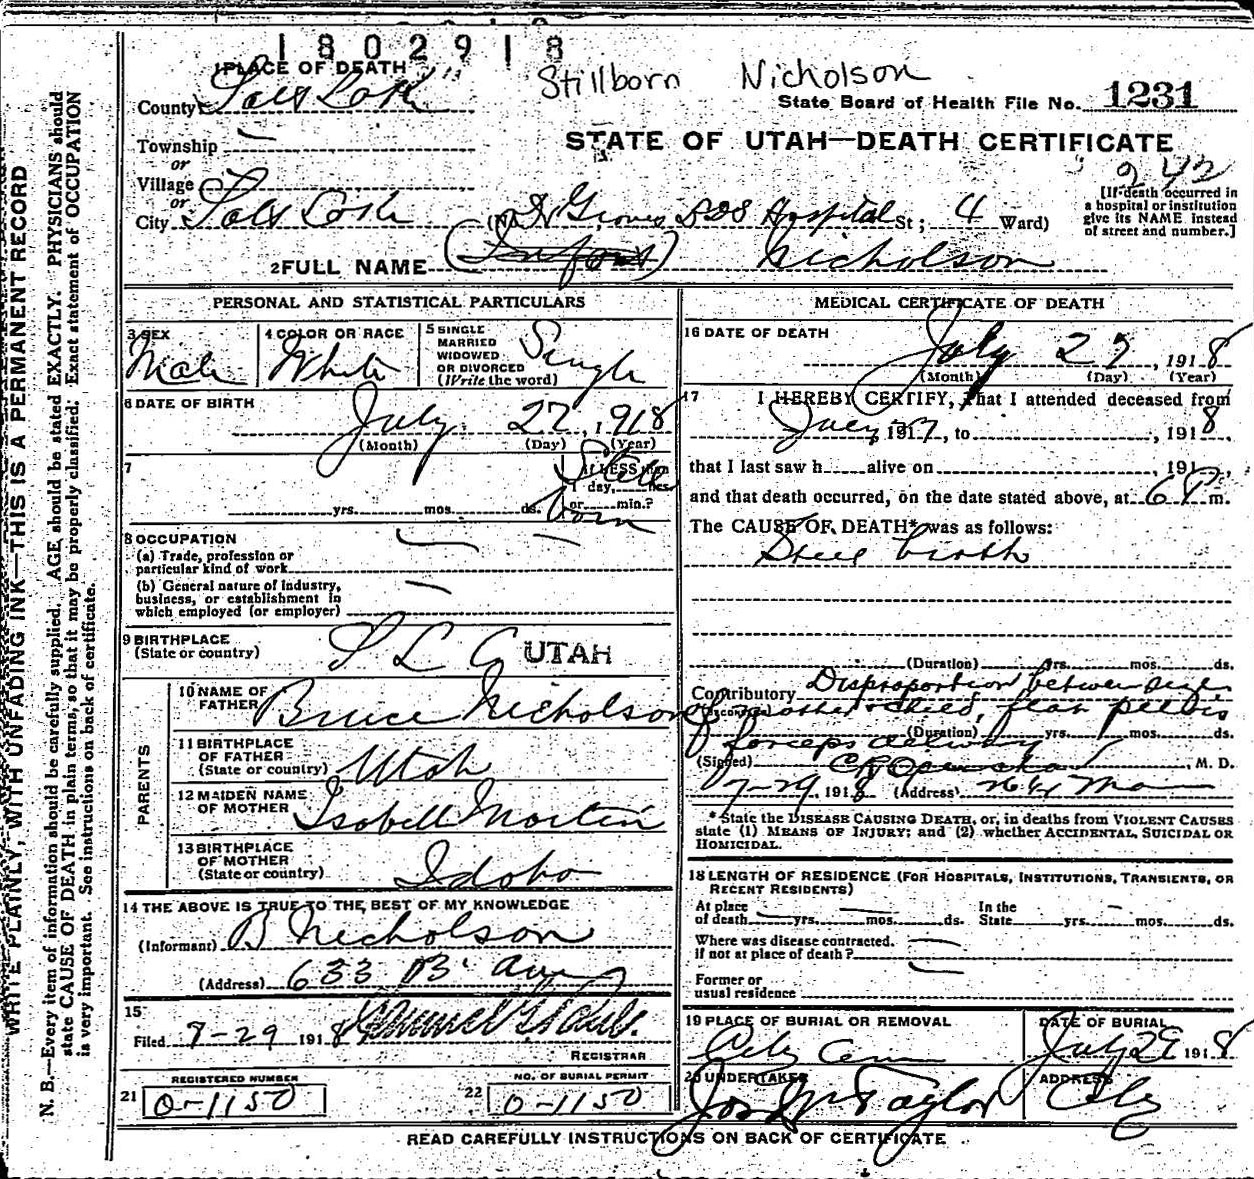 1802918
1 PLACE OF DEATH
Stillborn Nicholson
County Salt Lake
State Board of Health File No. 1231
STATE OF UTAH—DEATH CERTIFICATE
Township —
or
Village
or
242
[If death occurred in
a hospital or institution
give its NAME instead
of street and number.]
City Salt Lake (No. Dr Groves LDS Hospital St; 4 Ward)
2 FULL NAME (Infant) Nicholson
PERSONAL AND STATISTICAL PARTICULARS
3 SEX
Male
4 COLOR OR RACE
White
5 SINGLE
MARRIED
WIDOWED
OR DIVORCED
(Write the word)
Single
6 DATE OF BIRTH
July 27, 1918
(Month) (Day) (Year)
7
Still
If LESS than
1 day, hrs.
yrs. mos. ds. or min.?
born
8 OCCUPATION
(a) Trade, profession or
particular kind of work
(b) General nature of industry,
business, or establishment in
which employed (or employer)
9 BIRTHPLACE
(State or country) S L C UTAH
PARENTS
10 NAME OF
FATHER Bruce Nicholson
11 BIRTHPLACE
OF FATHER
(State or country) Utah
12 MAIDEN NAME
OF MOTHER Isobell Mortin
13 BIRTHPLACE
OF MOTHER
(State or country) Idaho
14 THE ABOVE IS TRUE TO THE BEST OF MY KNOWLEDGE
(Informant) B Nicholson
(Address) 633 B Ave
15
Filed 7-29 1918
REGISTRAR
REGISTERED NUMBER
21 0-1150
NO. OF BURIAL PERMIT
22 0-1150
MEDICAL CERTIFICATE OF DEATH
16 DATE OF DEATH
July 27, 1918
(Month) (Day) (Year)
17 I HEREBY CERTIFY, That I attended deceased from
July 27, 191 , to , 1918,
that I last saw h alive on , 191 ,
and that death occurred, on the date stated above, at 6 P m.
The CAUSE OF DEATH* was as follows:
Still birth
(Duration) yrs. mos. ds.
Contributory Disproportion between size
(Secondary) of mother & child, flat pelvis
(Duration) yrs. mos. ds.
forceps delivery
(Signed) M. D.
7-29, 1918 (Address)
*State the DISEASE CAUSING DEATH, or, in deaths from VIOLENT CAUSES
state (1) MEANS OF INJURY; and (2) whether ACCIDENTAL, SUICIDAL OR
HOMICIDAL.
18 LENGTH OF RESIDENCE (FOR HOSPITALS, INSTITUTIONS, TRANSIENTS, OR
RECENT RESIDENTS)
At place In the
of death yrs. mos. ds. State yrs. mos. ds.
Where was disease contracted.
if not at place of death?
Former or
usual residence
19 PLACE OF BURIAL OR REMOVAL
City Cem
DATE OF BURIAL
July 29 1918
20 UNDERTAKER
Jos Wm Taylor
ADDRESS
City
READ CAREFULLY INSTRUCTIONS ON BACK OF CERTIFICATE
WRITE PLAINLY, WITH UNFADING INK—THIS IS A PERMANENT RECORD
N. B.—Every item of information should be carefully supplied. AGE should be stated EXACTLY. PHYSICIANS should
state CAUSE OF DEATH in plain terms, so that it may be properly classified. Exact statement of OCCUPATION
is very important. See instructions on back of certificate.